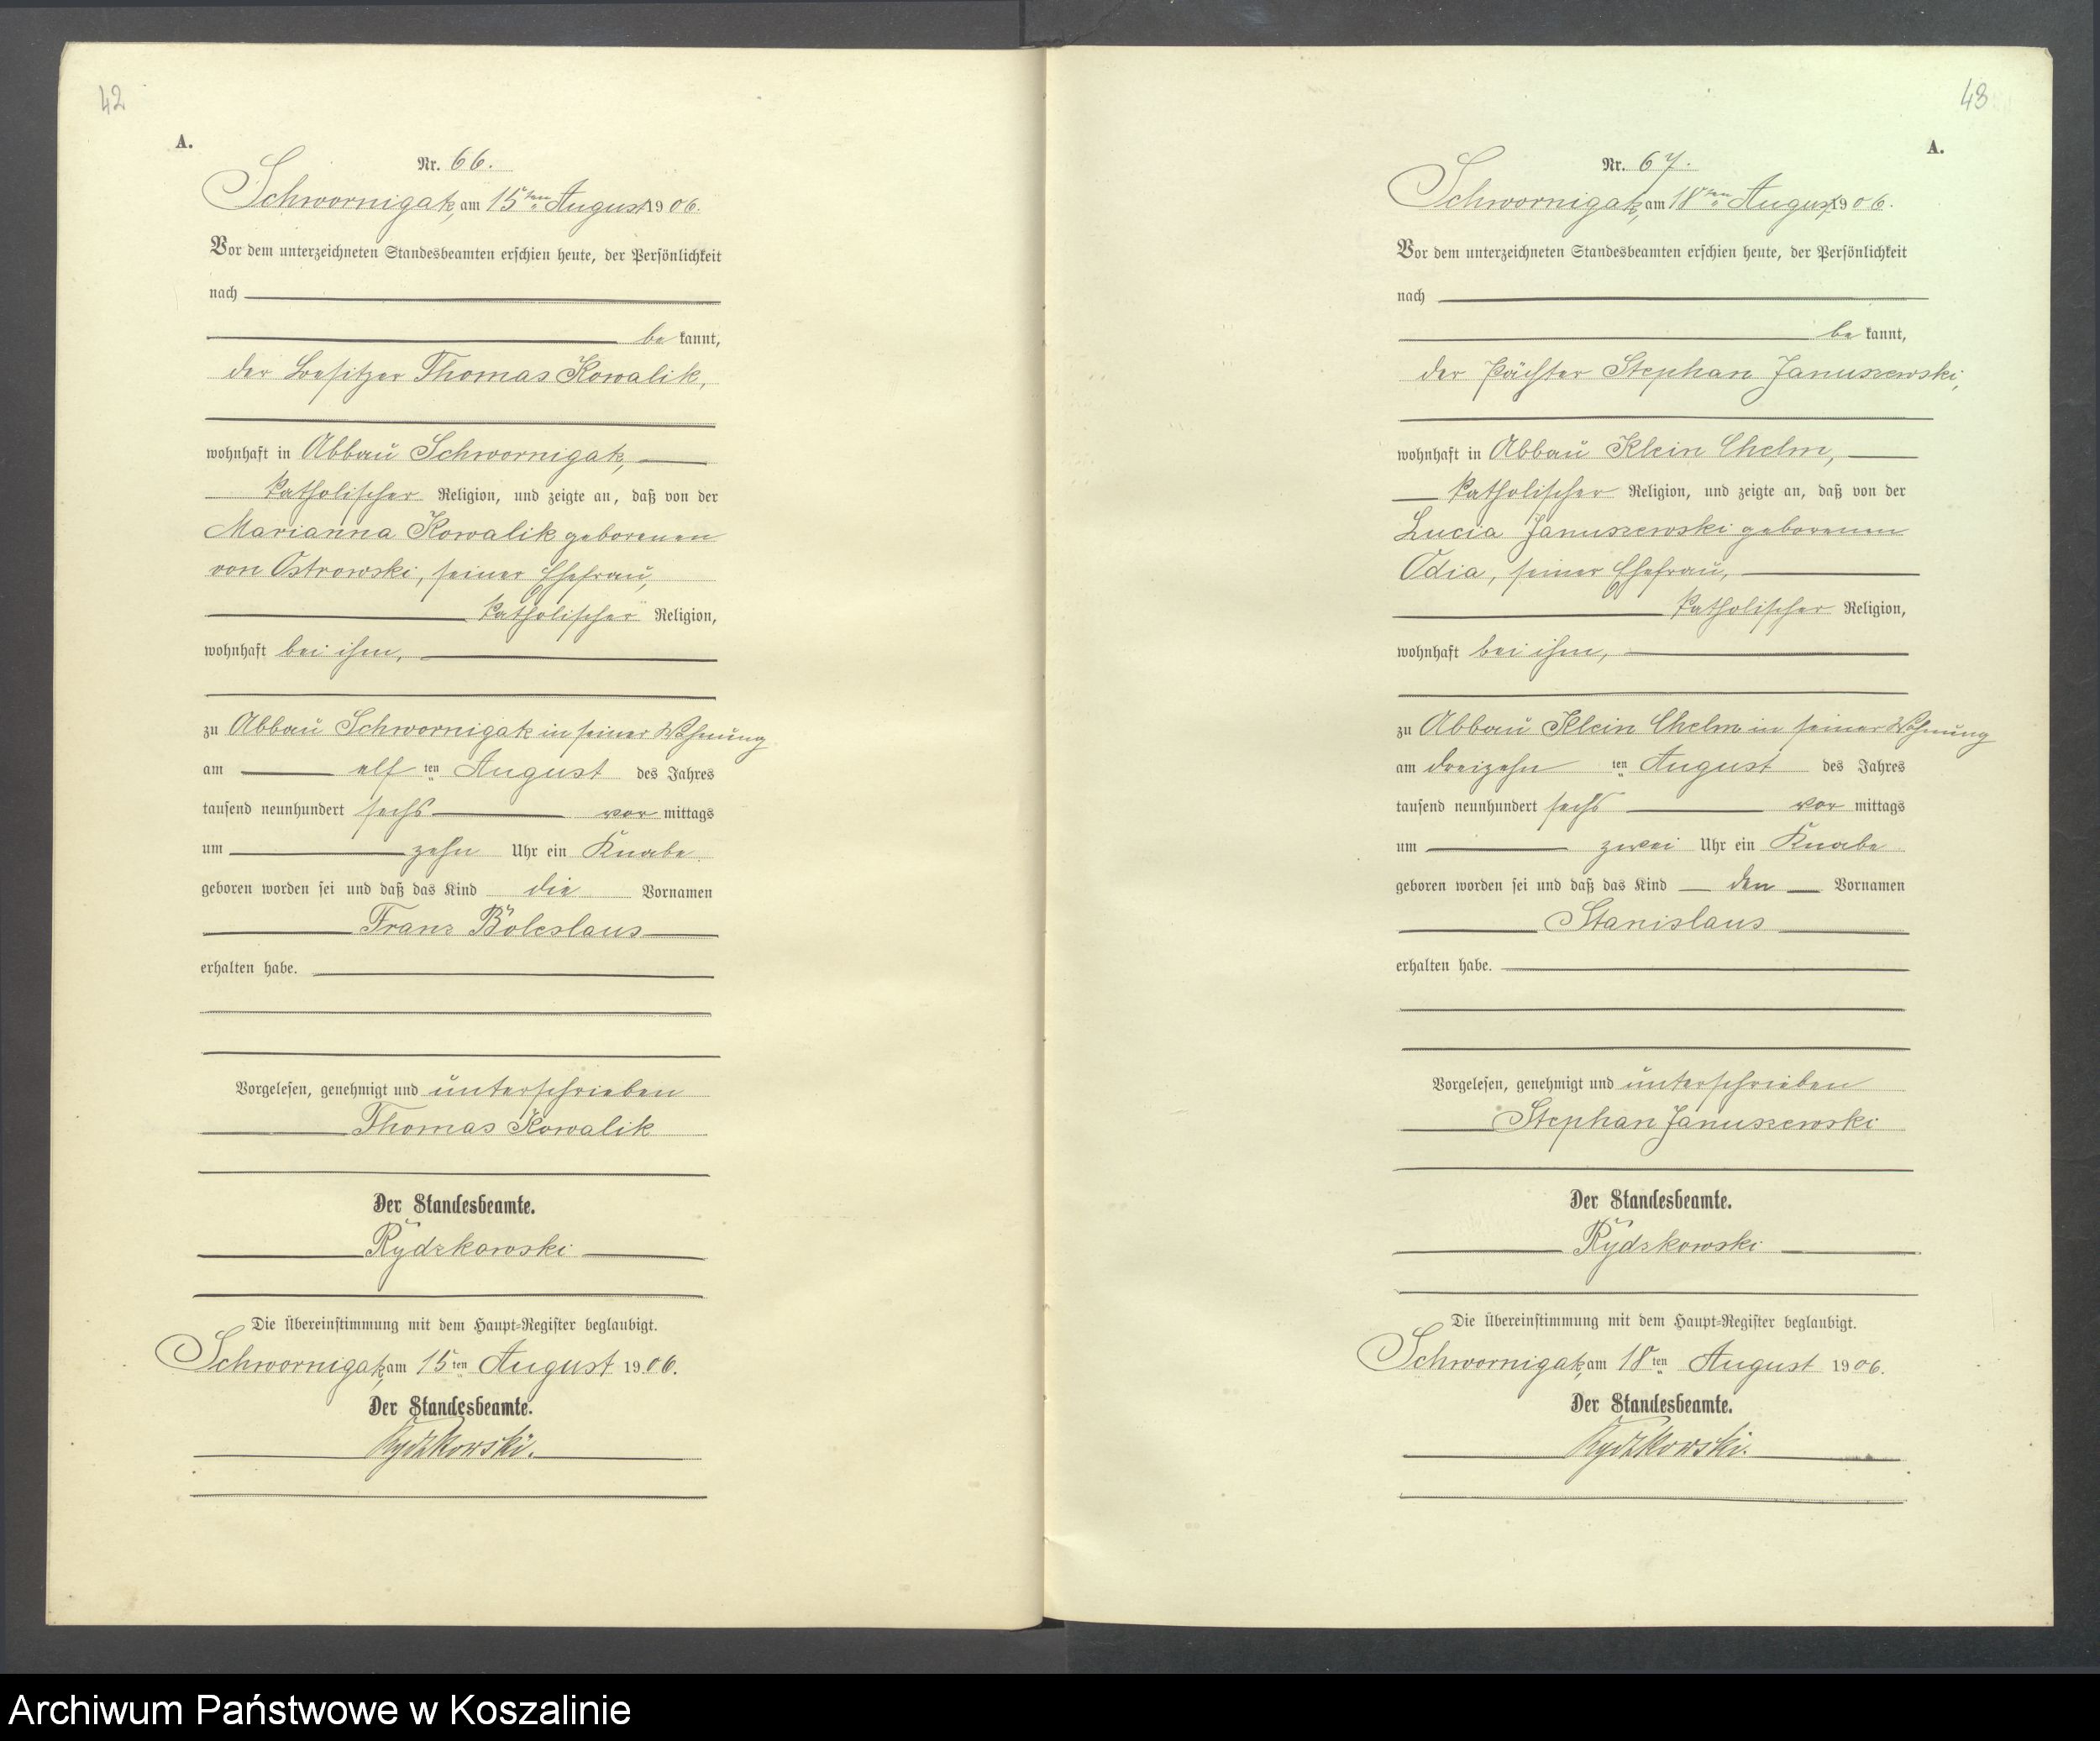 42
A.
Nr. 66.
Schwornigatz, am 15ten August 1906.
Vor dem unterzeichneten Standesbeamten erschien heute, der Persönlichkeit
nach
be kannt,
der Besitzer Thomas Kowalik,
wohnhaft in Abbau Schwornigatz,
katholischer Religion, und zeigte an, daß von der
Marianna Kowalik geborenen
von Ostrowski, seiner Ehefrau,
katholischer Religion,
wohnhaft bei ihm,
zu Abbau Schwornigatz in seiner Wohnung
am elf ten August des Jahres
tausend neunhundert sechs vor mittags
um zehn Uhr ein Knabe
geboren worden sei und daß das Kind die Vornamen
Franz Boleslaus
erhalten habe.
Vorgelesen, genehmigt und unterschrieben
Thomas Kowalik
Der Standesbeamte.
Rydzkowski
Die Übereinstimmung mit dem Haupt-Register beglaubigt.
Schwornigatz, am 15ten August 1906.
Der Standesbeamte.
Rydzkowski.
43
A.
Nr. 67.
Schwornigatz, am 18ten August 1906.
Vor dem unterzeichneten Standesbeamten erschien heute, der Persönlichkeit
nach
be kannt,
der Pächter Stephan Januszewski,
wohnhaft in Abbau Klein Chelm,
katholischer Religion, und zeigte an, daß von der
Lucia Januszewski geborenen
Odia, seiner Ehefrau,
katholischer Religion,
wohnhaft bei ihm,
zu Abbau Klein Chelm in seiner Wohnung
am dreizehn ten August des Jahres
tausend neunhundert sechs vor mittags
um zwei Uhr ein Knabe
geboren worden sei und daß das Kind den Vornamen
Stanislaus
erhalten habe.
Vorgelesen, genehmigt und unterschrieben
Stephan Januszewski
Der Standesbeamte.
Rydzkowski
Die Übereinstimmung mit dem Haupt-Register beglaubigt.
Schwornigatz, am 18ten August 1906.
Der Standesbeamte.
Rydzkowski.
Archiwum Państwowe w Koszalinie